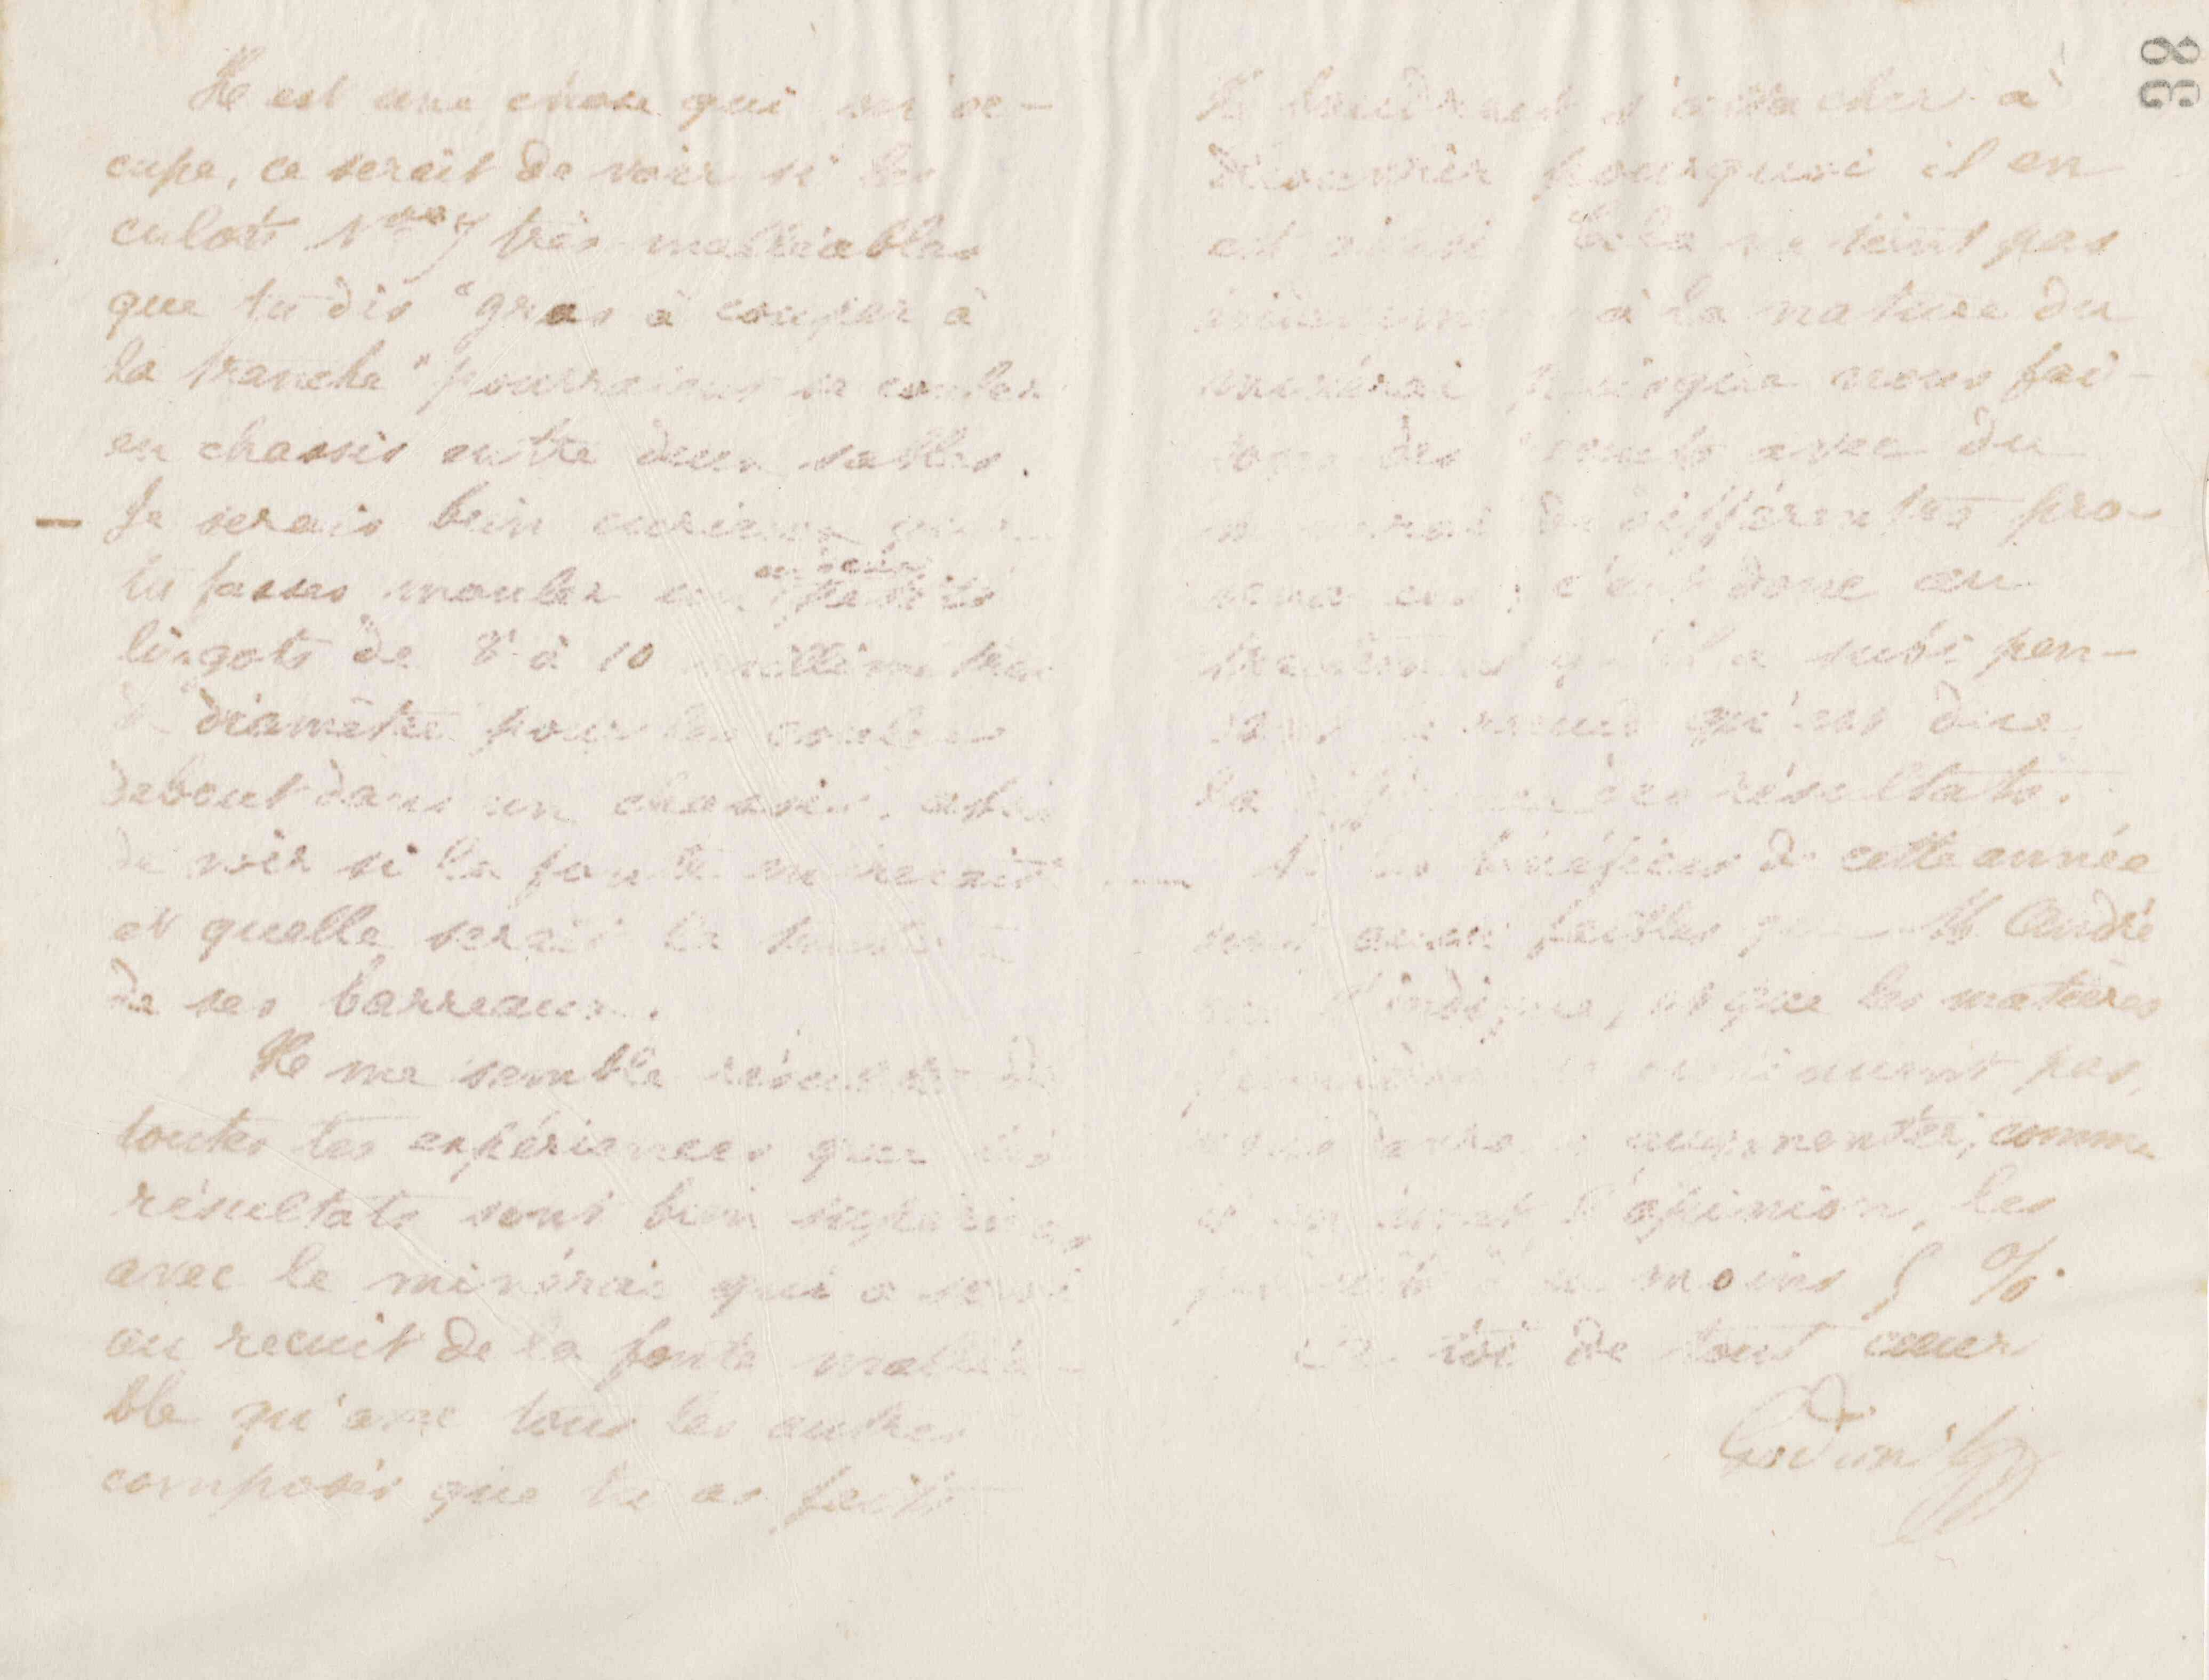 38
Il est une chose qui m'oc-
cupe, ce serait de voir si les
culots Nos 7 très malléables
que tu dis "gras à couper à
la tranche" pourraient se couler
en chassis entre deux sables.
— Je serais bien curieux que
tu fasses mouler en petits
lingots de 8 à 10 millimètres
de diamètre pour les couler
debout dans un chassis, afin
de voir si la fonte
et quelle serait la
de ses barreaux.
Il me semble résulter de
toutes tes expériences que les
résultats sont bien supérieurs
avec le minérai qui a servi
au recuit de la fonte malléa-
ble qu'avec tous les autres
composés que tu as faits
Il faudrait s'attacher à
découvrir pourquoi il en
est ainsi Cela ne tient pas
à la nature du
minérai puisque nous fai-
sons des recuits avec du
minérai de différentes pro-
venances; c'est donc au
traitement qu'il a subi pen-
dant le recuit qu'est due
la des résultats.
— Si les bénéfices de cette année
sont aussi faibles que M. André
l'indique, et que les matières
premières ne diminuent pas,
mais tendent à augmenter, comme
l'opinion, les
moins 5 %.
À toi de tout cœur
Godin